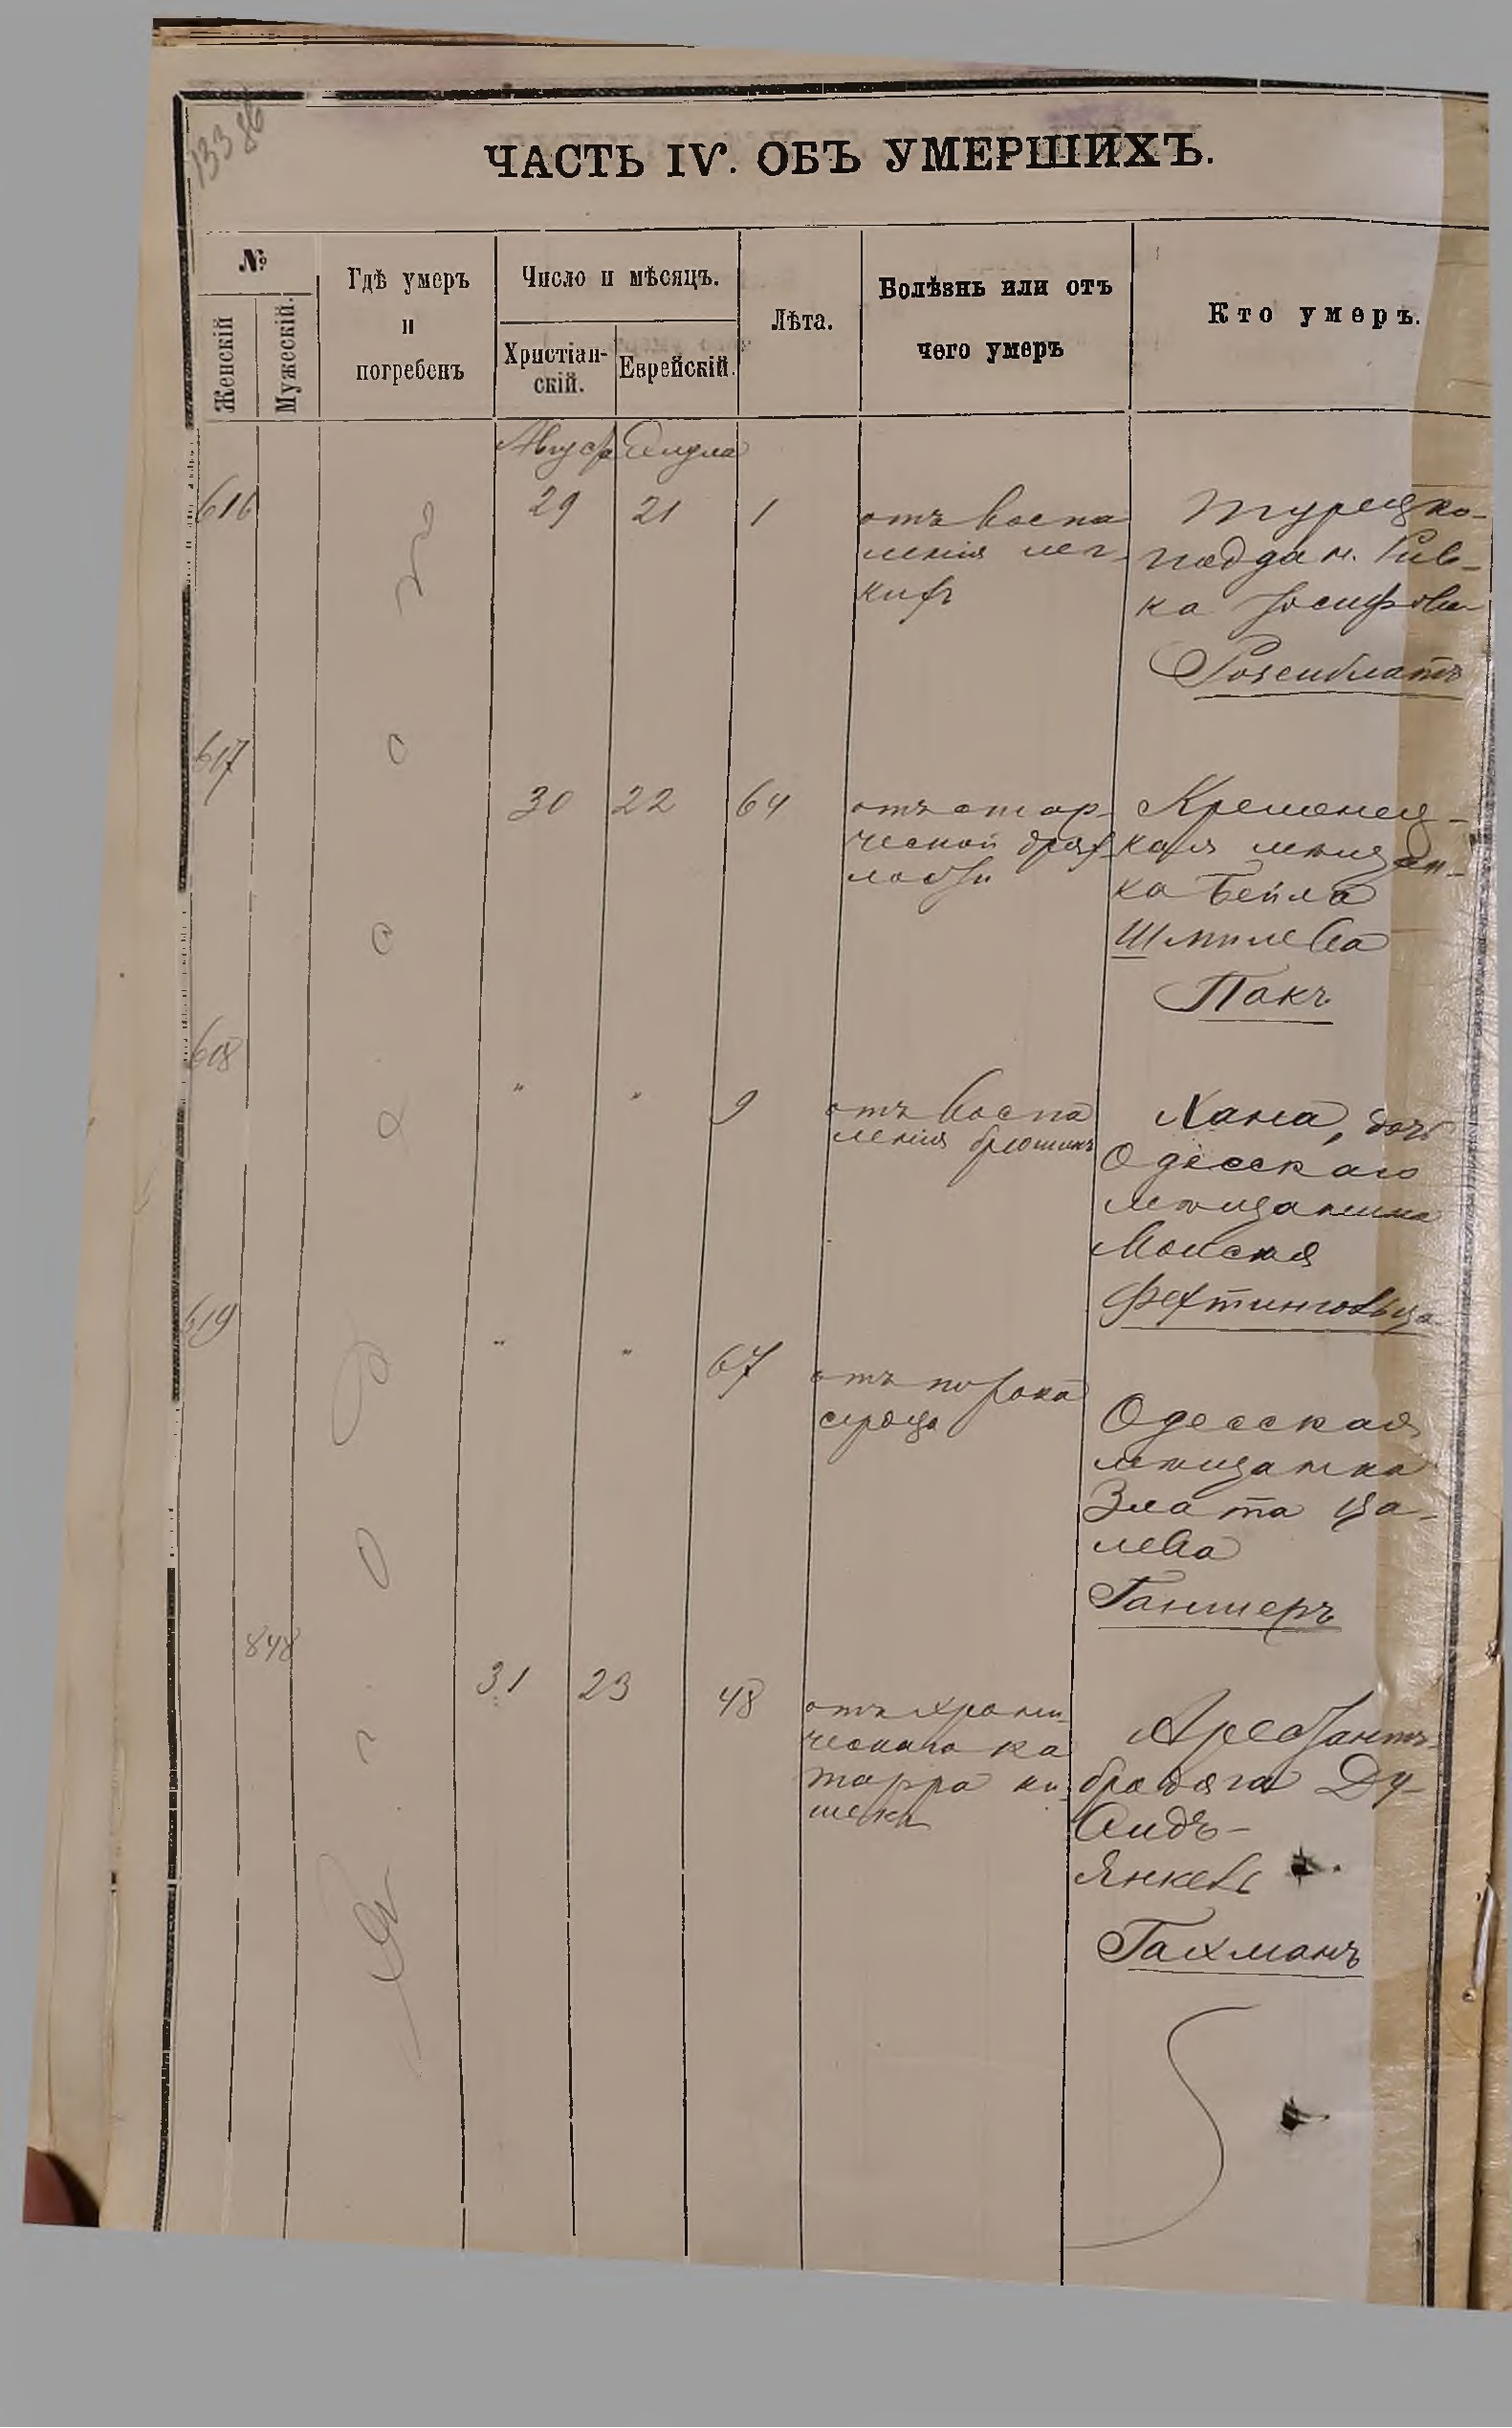 13386
ЧАСТЬ IV. ОБЪ УМЕРШИХЪ.
№
Женскій
Мужескій.
Гдѣ умеръ
и
погребенъ
Число и мѣсяцъ.
Христіан-
скій.
Еврейскій.
Лѣта.
Болѣзнь или отъ
чего умеръ
Кто умеръ.
Август Элула
616 29 21 1
отъ воспа
ленія лег-
кихъ
Турецко-
поддан. Рив-
ка Іосифова
Розенблатъ
617 30 22 64
отъ стар-
ческой дрях
лости
Кременец-
кая мѣщан-
ка Бейла
Шмилева
Пакъ
618 " " 9
отъ воспа
ленія брюшины
Хана, дочь
Одесскаго
мѣщанина
Моисея
Фехтингольца
619 " " 67
отъ порока
сердца
Одесская
мѣщанка
Злата Ца-
лева
Ганшеръ
848 31 23 48
отъ хрони
ческаго ка
тарра ки-
шекъ
Арестантъ
бродяга Ду-
видъ-
Янкель
Гахманъ
Въ г. Одессѣ